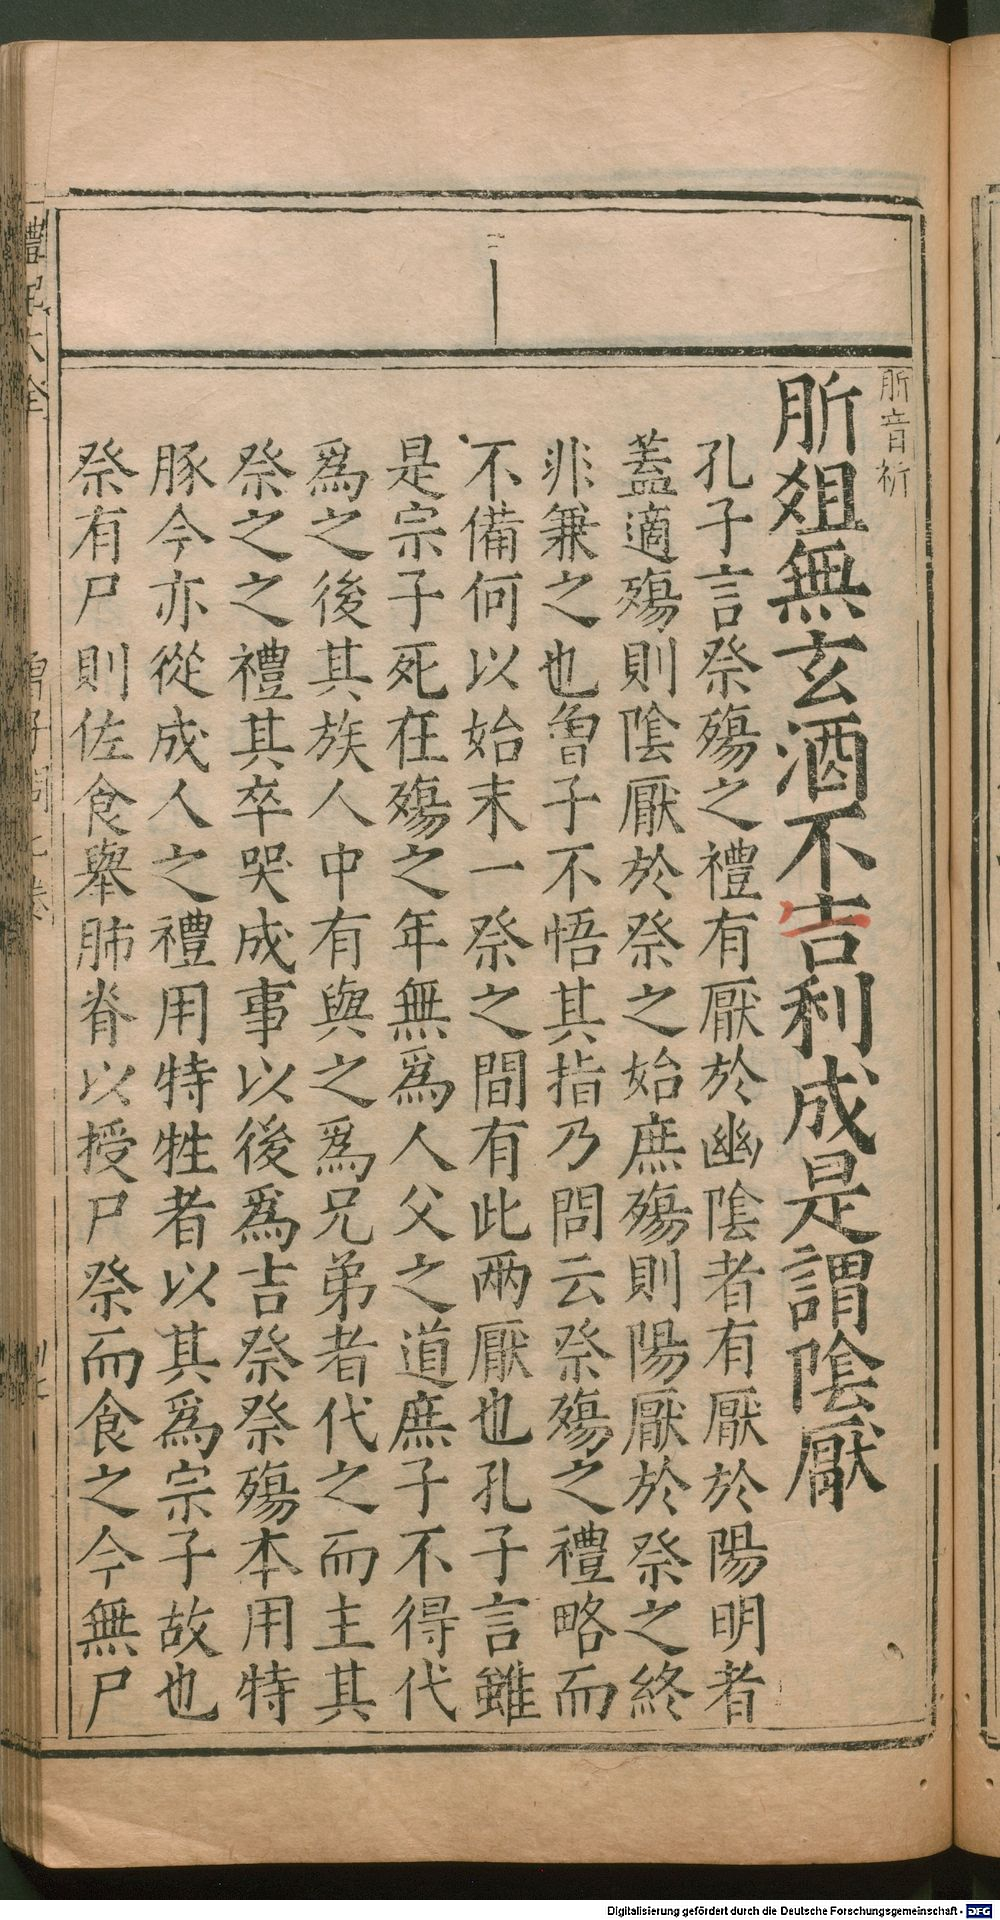 肵音祈
肵爼無玄酒不告利成是謂陰厭
孔子言祭殤之禮有厭於幽陰者有厭於陽明者
蓋適殤則陰厭於祭之始庶殤則陽厭於祭之終
非兼之也曾子不悟其指乃問云祭殤之禮略而
不備何以始末一祭之間有此兩厭也孔子言雖
是宗子死在殤之年無爲人父之道庶子不得代
爲之後其族人中有與之爲兄弟者代之而主其
祭之之禮其卒哭成事以後爲吉祭祭殤本用特
豚今亦從成人之禮用特牲者以其爲宗子故也
祭有尸則佐食舉肺脊以授尸祭而食之今無尸
禮記大全
曾子問七卷
Digitalisierung gefördert durch die Deutsche Forschungsgemeinschaft - DFG